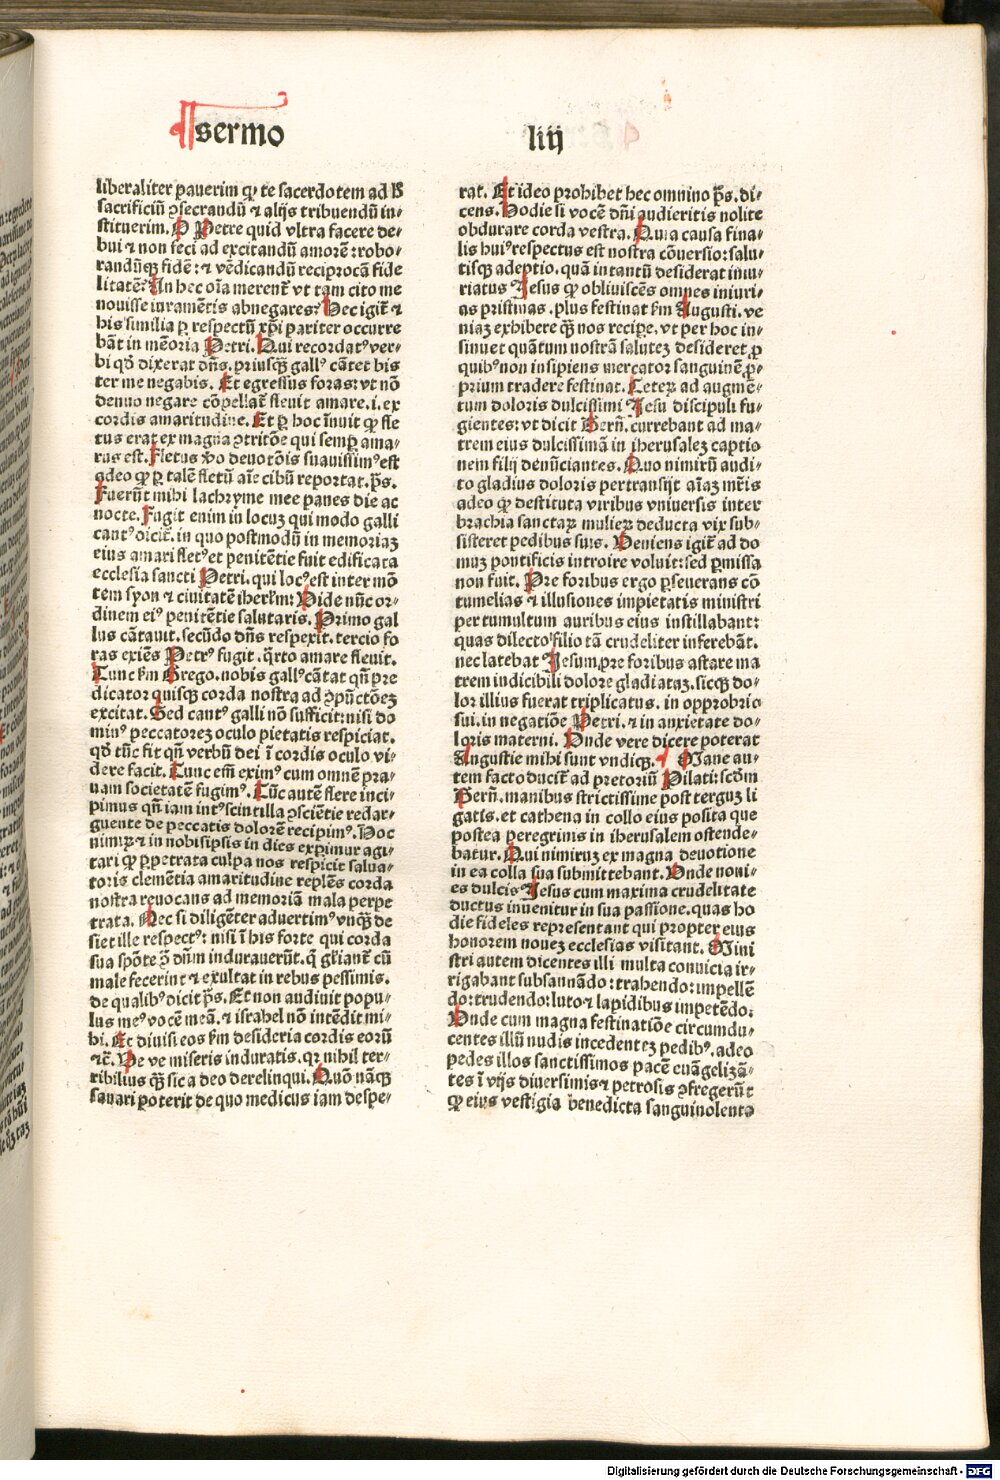 sermo
liij
liberaliter pauerim qꝫ te sacerdotem ad B
sacrificiũ ꝯsecrandũ ⁊ alijs tribuendũ in⸗
stituerim. O Petre quid vltra facere de⸗
bui ⁊ non feci ad excitandũ amorẽ: robo⸗
randũqꝫ fidẽ: ⁊ vẽdicandũ reciprocã fide
litatẽ? An hec oĩa merent᷑ vt tam cito me
nouisse iuramẽtis abnegares? Hec igit᷑ ⁊
his similia ꝑ respectũ xp̃i pariter occurre
bãt in mẽoria Petri. Qui recordatꝰ ver⸗
bi qđ dixerat dñs. priusqꝫ gallꝰ cãtet bis
ter me negabis. Et egressus foras: vt nõ
denuo negare cõpellat᷑ fleuit amare. i. ex
cordis amaritudine. Et ꝑ hoc ĩnuit ꝙ fle
tus erat ex magna ꝯtritõe qui semꝑ ama⸗
rus est. Fletus ṽo deuotõis suauissimꝰ est
adeo ꝙ ꝑ talẽ fletũ aĩe cibũ reportat. p̃s.
Fuerũt mihi lachryme mee panes die ac
nocte. Fugit enim in locuꝫ qui modo galli
cantꝰ dicit᷑. in quo postmodũ in memoriaꝫ
eius amari fletꝰ et penitẽtie fuit edificata
ecclesia sancti Petri. qui locꝰ est inter mõ
tem syon ⁊ ciuitatẽ iherlm̃: Vide nũc or⸗
dinem eiꝰ penitẽtie salutaris. Primo gal
lus cãtauit. secũdo dñs respexit. tercio fo
ras exiẽs Petrꝰ fugit. q̃rto amare fleuit.
Tunc ẜm Grego. nobis gallꝰ cãtat qñ pre
dicator quisqꝫ corda nostra ad ꝯpũctõeꝫ
excitat. Sed cantꝰ galli nõ sufficit: nisi do
minꝰ peccatoreꝫ oculo pietatis respiciat.
qđ tũc fit qñ verbũ dei ĩ cordis oculo vi⸗
dere facit. Tunc em̃ eximꝰ cum omnẽ pra⸗
uam societatẽ fugimꝰ. Tũc autẽ flere inci⸗
pimus qñ iam intꝰ scintilla ꝯsciẽtie redar⸗
guente de peccatis dolorẽ recipimꝰ. Hoc
nimiꝝ ⁊ in nobisipsis in dies exꝑimur agi⸗
tari ꝙ ꝑpetrata culpa nos respicit salua⸗
toris clemẽtia amaritudine replẽs corda
nostra reuocans ad memoriã mala perpe
trata. Nec si diligẽter aduertimꝰ vnqꝫ de
siet ille respectꝰ: nisi ĩ his forte qui corda
sua spõte ꝯ̃ dñm indurauerũt. q̃ gl̃iant᷑ cũ
male fecerint ⁊ exultat in rebus pessimis.
de qualibꝰ dicit p̃s. Et non audiuit popu⸗
lus meꝰ vocẽ meã. ⁊ israhel nõ intẽdit mi⸗
hi. Et diuisi eos ẜm desideria cordis eorũ
⁊c̃. Ve ve miseris induratis. qꝛ nihil ter⸗
ribilius qꝫ̃ sic a deo derelinqui. Quõ nãqꝫ
sanari poterit de quo medicus iam despe⸗
rat. Et ideo prohibet hec omnino p̃s. di⸗
cens. Hodie si vocẽ dñi audieritis nolite
obdurare corda vestra. Quia causa fina⸗
lis huiꝰ respectus est nostra cõuersio: salu⸗
tisqꝫ adeptio. quã in tantũ desiderat iniu⸗
riatus Jesus ꝙ obliuiscẽs omnes iniuri⸗
as pristinas. plus festinat ẜm Augusti. ve
niaꝫ exhibere qꝫ̃ nos recipe. vt per hoc in⸗
sinuet quãtum nostrã saluteꝫ desideret. ꝓ
quibꝰ non insipiens mercator sanguinẽ ꝓ⸗
prium tradere festinat. Ceteꝝ ad augmẽ⸗
tum doloris dulcissimi Jesu discipuli fu⸗
gientes: vt dicit Berñ. currebant ad ma⸗
trem eius dulcissimã in iherusaleꝫ captio
nem filij denũciantes. Quo nimirũ audi⸗
to gladius doloris pertransijt aĩaꝫ mr̃is
adeo ꝙ destituta viribus vniuersis inter
brachia sanctaꝝ mulieꝝ deducta vix sub⸗
sisteret pedibus suis. Veniens igit᷑ ad do
muꝫ pontificis introire voluit: sed ꝑmissa
non fuit. Pre foribus ergo ꝑseuerans cõ
tumelias ⁊ illusiones impietatis ministri
per tumultum auribus eius instillabant:
quas dilecto filio tã crudeliter inferebãt.
nec latebat Jesum. pre foribus astare ma
trem indicibili dolore gladiataꝫ. sicqꝫ do⸗
lor illius fuerat triplicatus. in opprobrio
sui. in negatiõe Petri. ⁊ in anxietate do⸗
loris materni. Vnde vere dicere poterat
Angustie mihi sunt vndiqꝫ. Mane au⸗
tem facto ducit᷑ ad pretoriũ Pilati: scḋm
Berñ. manibus strictissime post terguꝫ li
gatis. et cathena in collo eius posita que
postea peregrinis in iherusalem ostende⸗
batur. Qui nimiruꝫ ex magna deuotione
in ea colla sua submittebant. Vnde noui⸗
es dulcis Jesus cum maxima crudelitate
ductus inuenitur in sua passione. quas ho
die fideles representant qui propter eius
honorem noueꝫ ecclesias visitant. Mini
stri autem dicentes illi multa conuicia ir⸗
rigabant subsannãdo: trahendo: impellẽ
do: trudendo: luto ⁊ lapidibus impetẽdo.
Vnde cum magna festinatiõe circumdu⸗
centes illũ nudis incedenteꝫ pedibꝰ. adeo
pedes illos sanctissimos pacẽ euãgelizã⸗
tes ĩ vijs diuersimis ⁊ petrosis ꝯfregerũt
ꝙ eius vestigia benedicta sanguinolenta
Digitalisierung gefördert durch die Deutsche Forschungsgemeinschaft - DFG